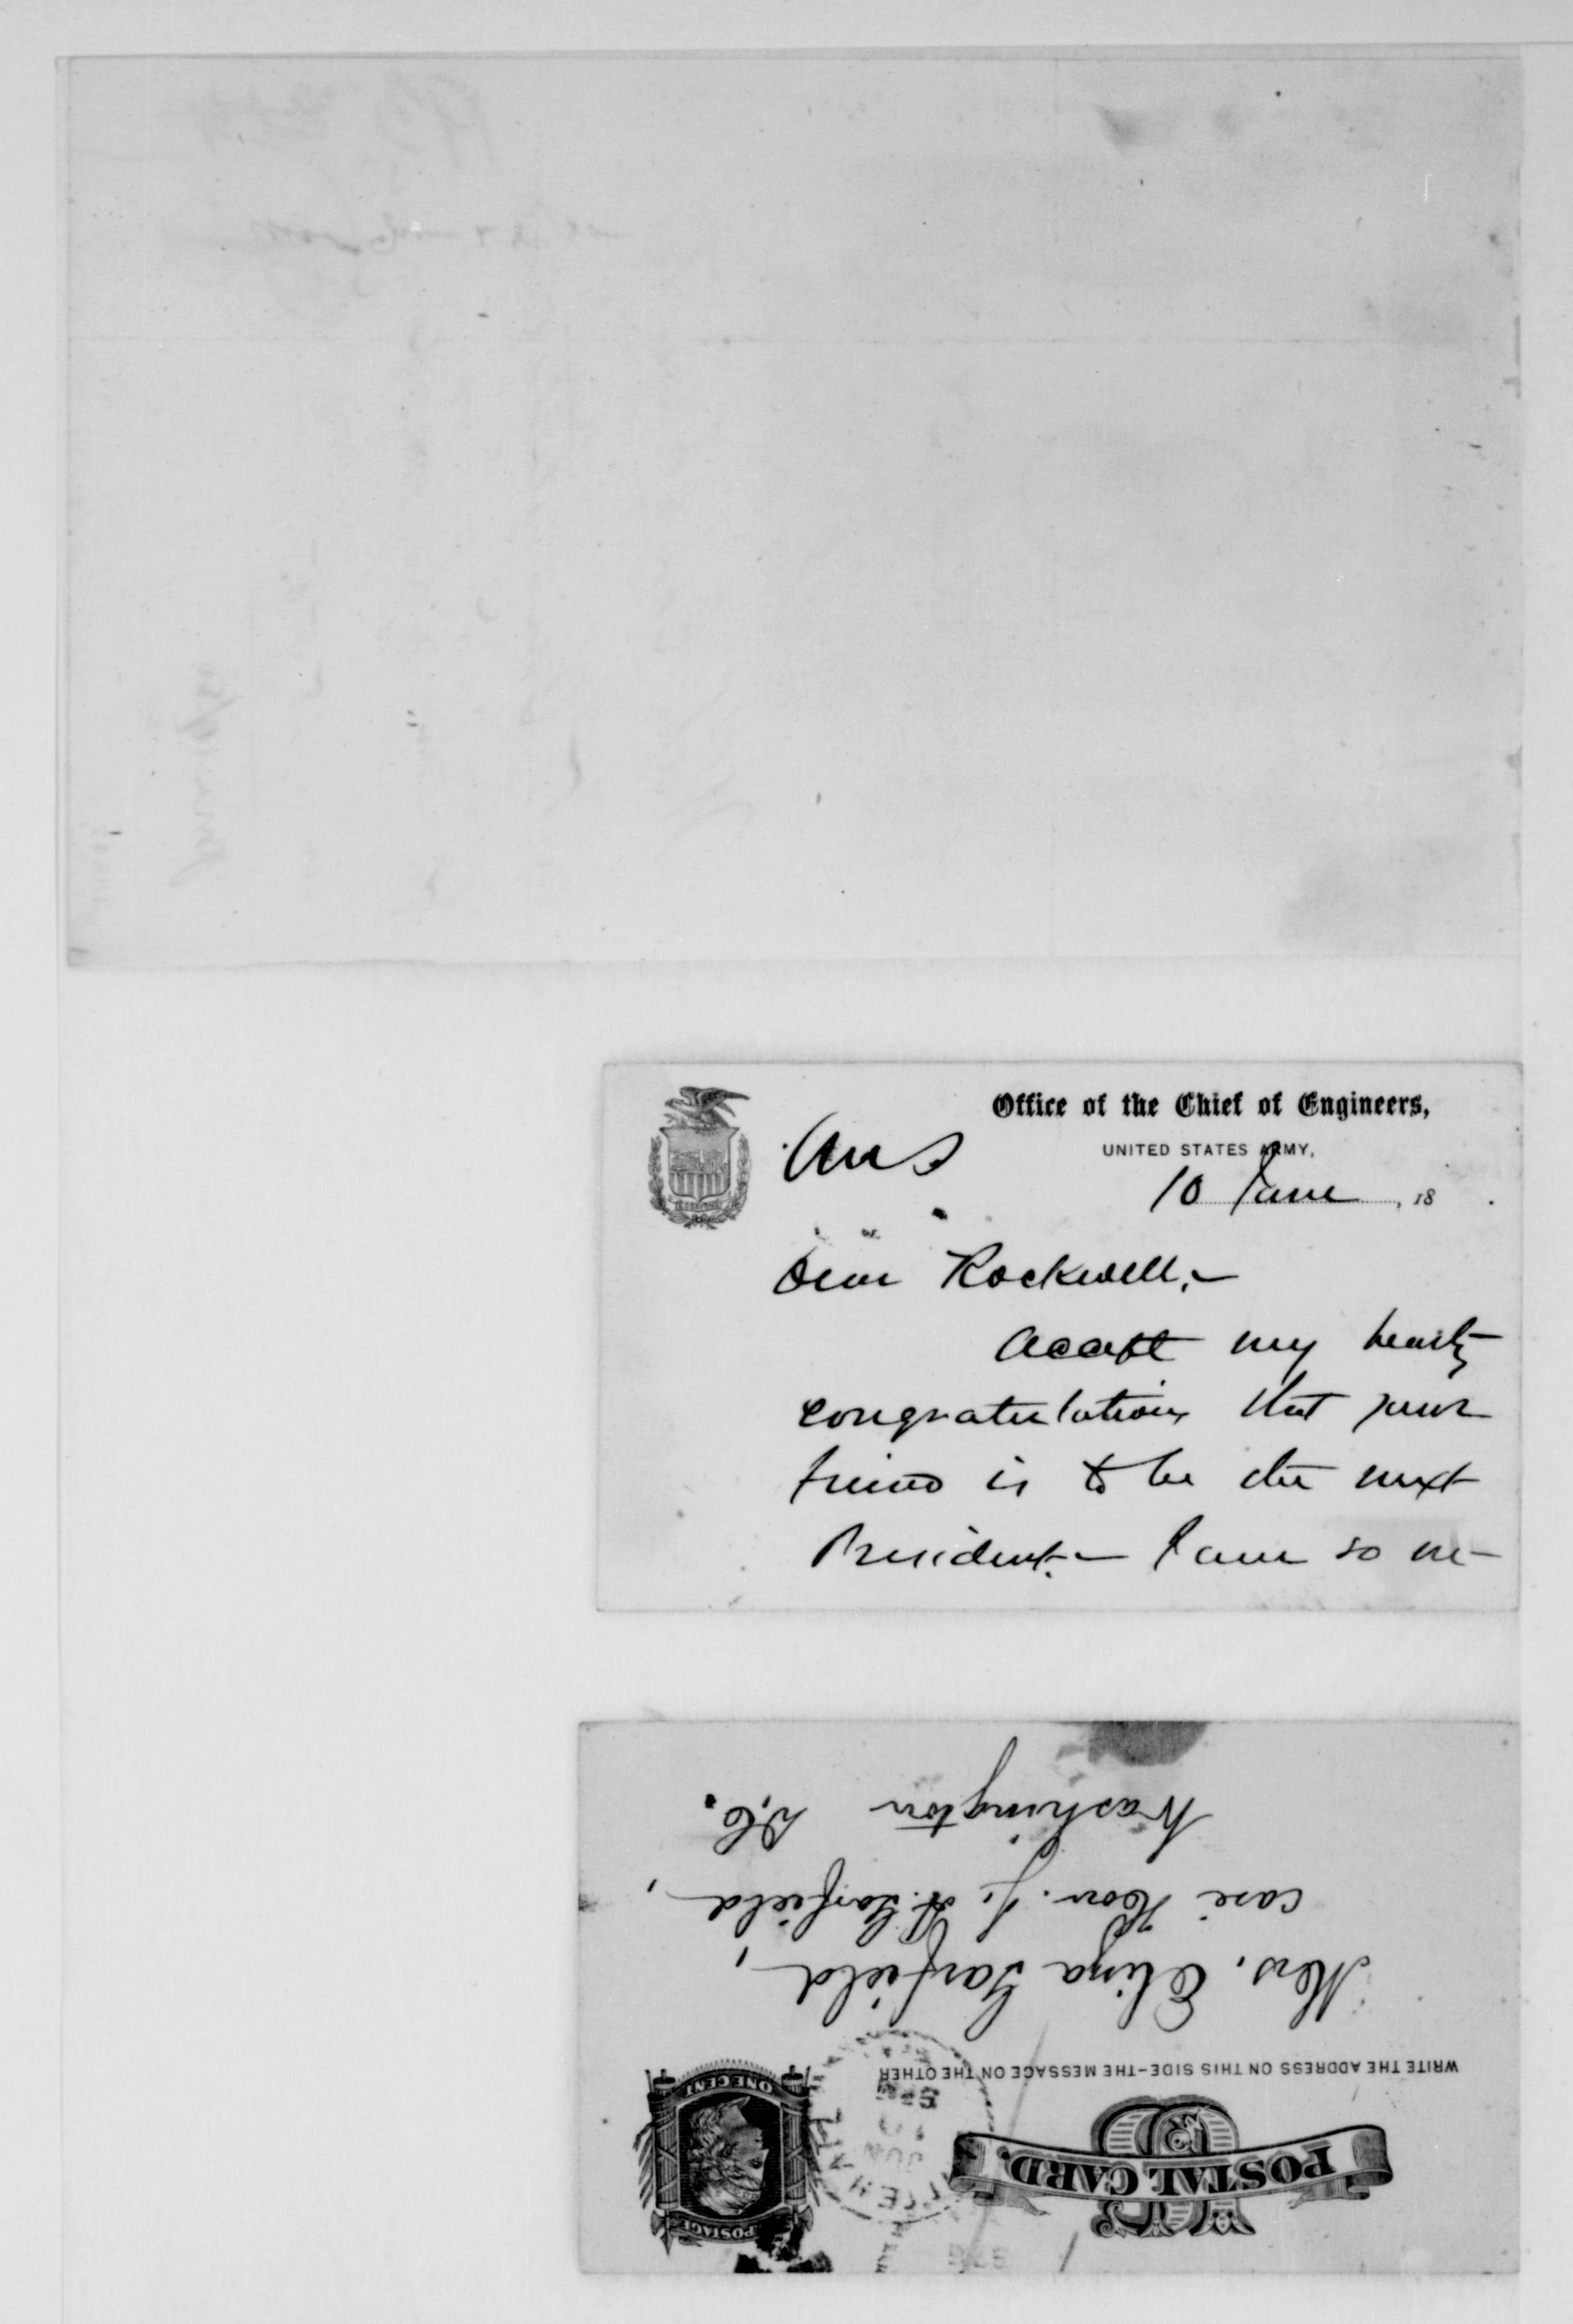 Office of the Chief of Engineers,
UNITED STATES ARMY,
Ans
10 June, 18 .
Dear Rockwell,—
Accept my hearty
congratulations that your
friend is to be the next
President.— I am so
Washington D.C.
care Hon. J. A. Garfield,
Mrs. Eliza Garfield,
WRITE THE ADDRESS ON THIS SIDE-THE MESSAGE ON THE OTHER
POSTAL CARD.
ONE CENT
POSTAGE
JUN
10